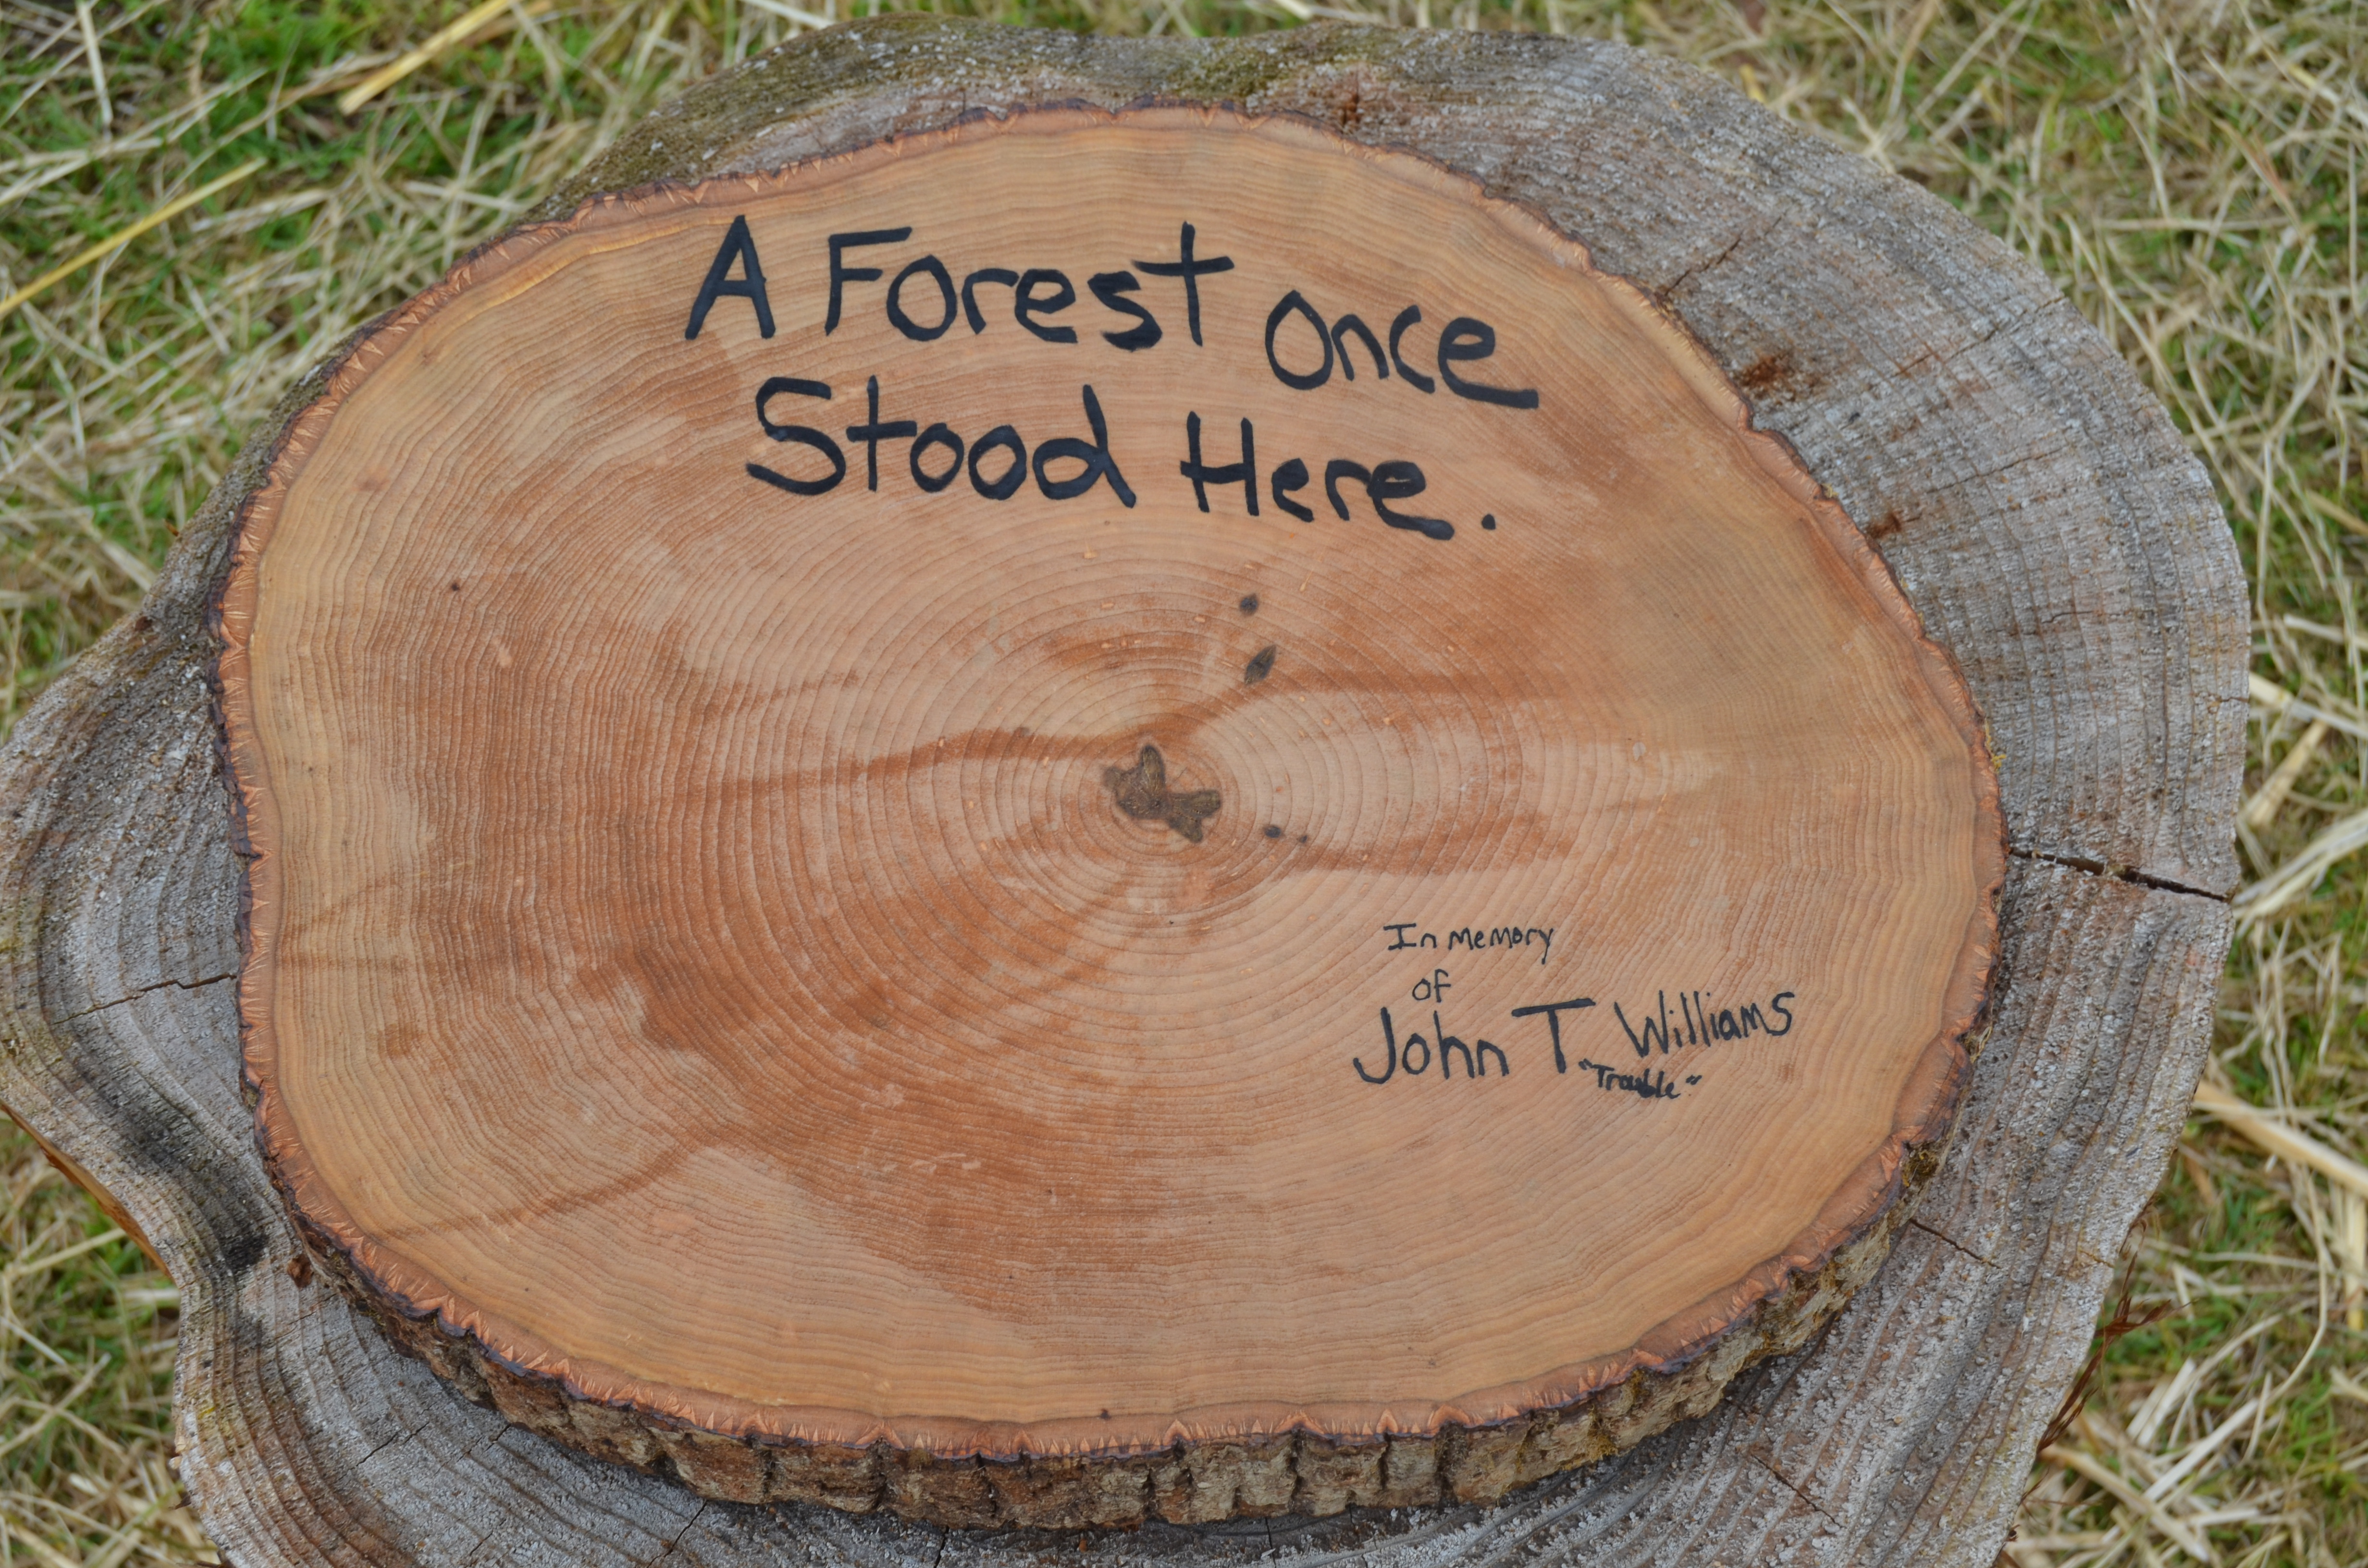 A Forest Once
Stood Here.
In Memory
of
John T. Williams
"Trouble"